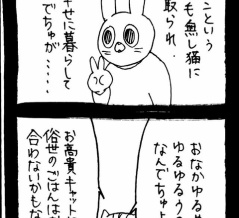 ンという
も無し猫に
取られ.
せに暮らして
でちゅが....
おなかゆるめ
ゆるゆるう
なんでちゅよ
お高貴キャット
俗世のごはんは
合わないかもな